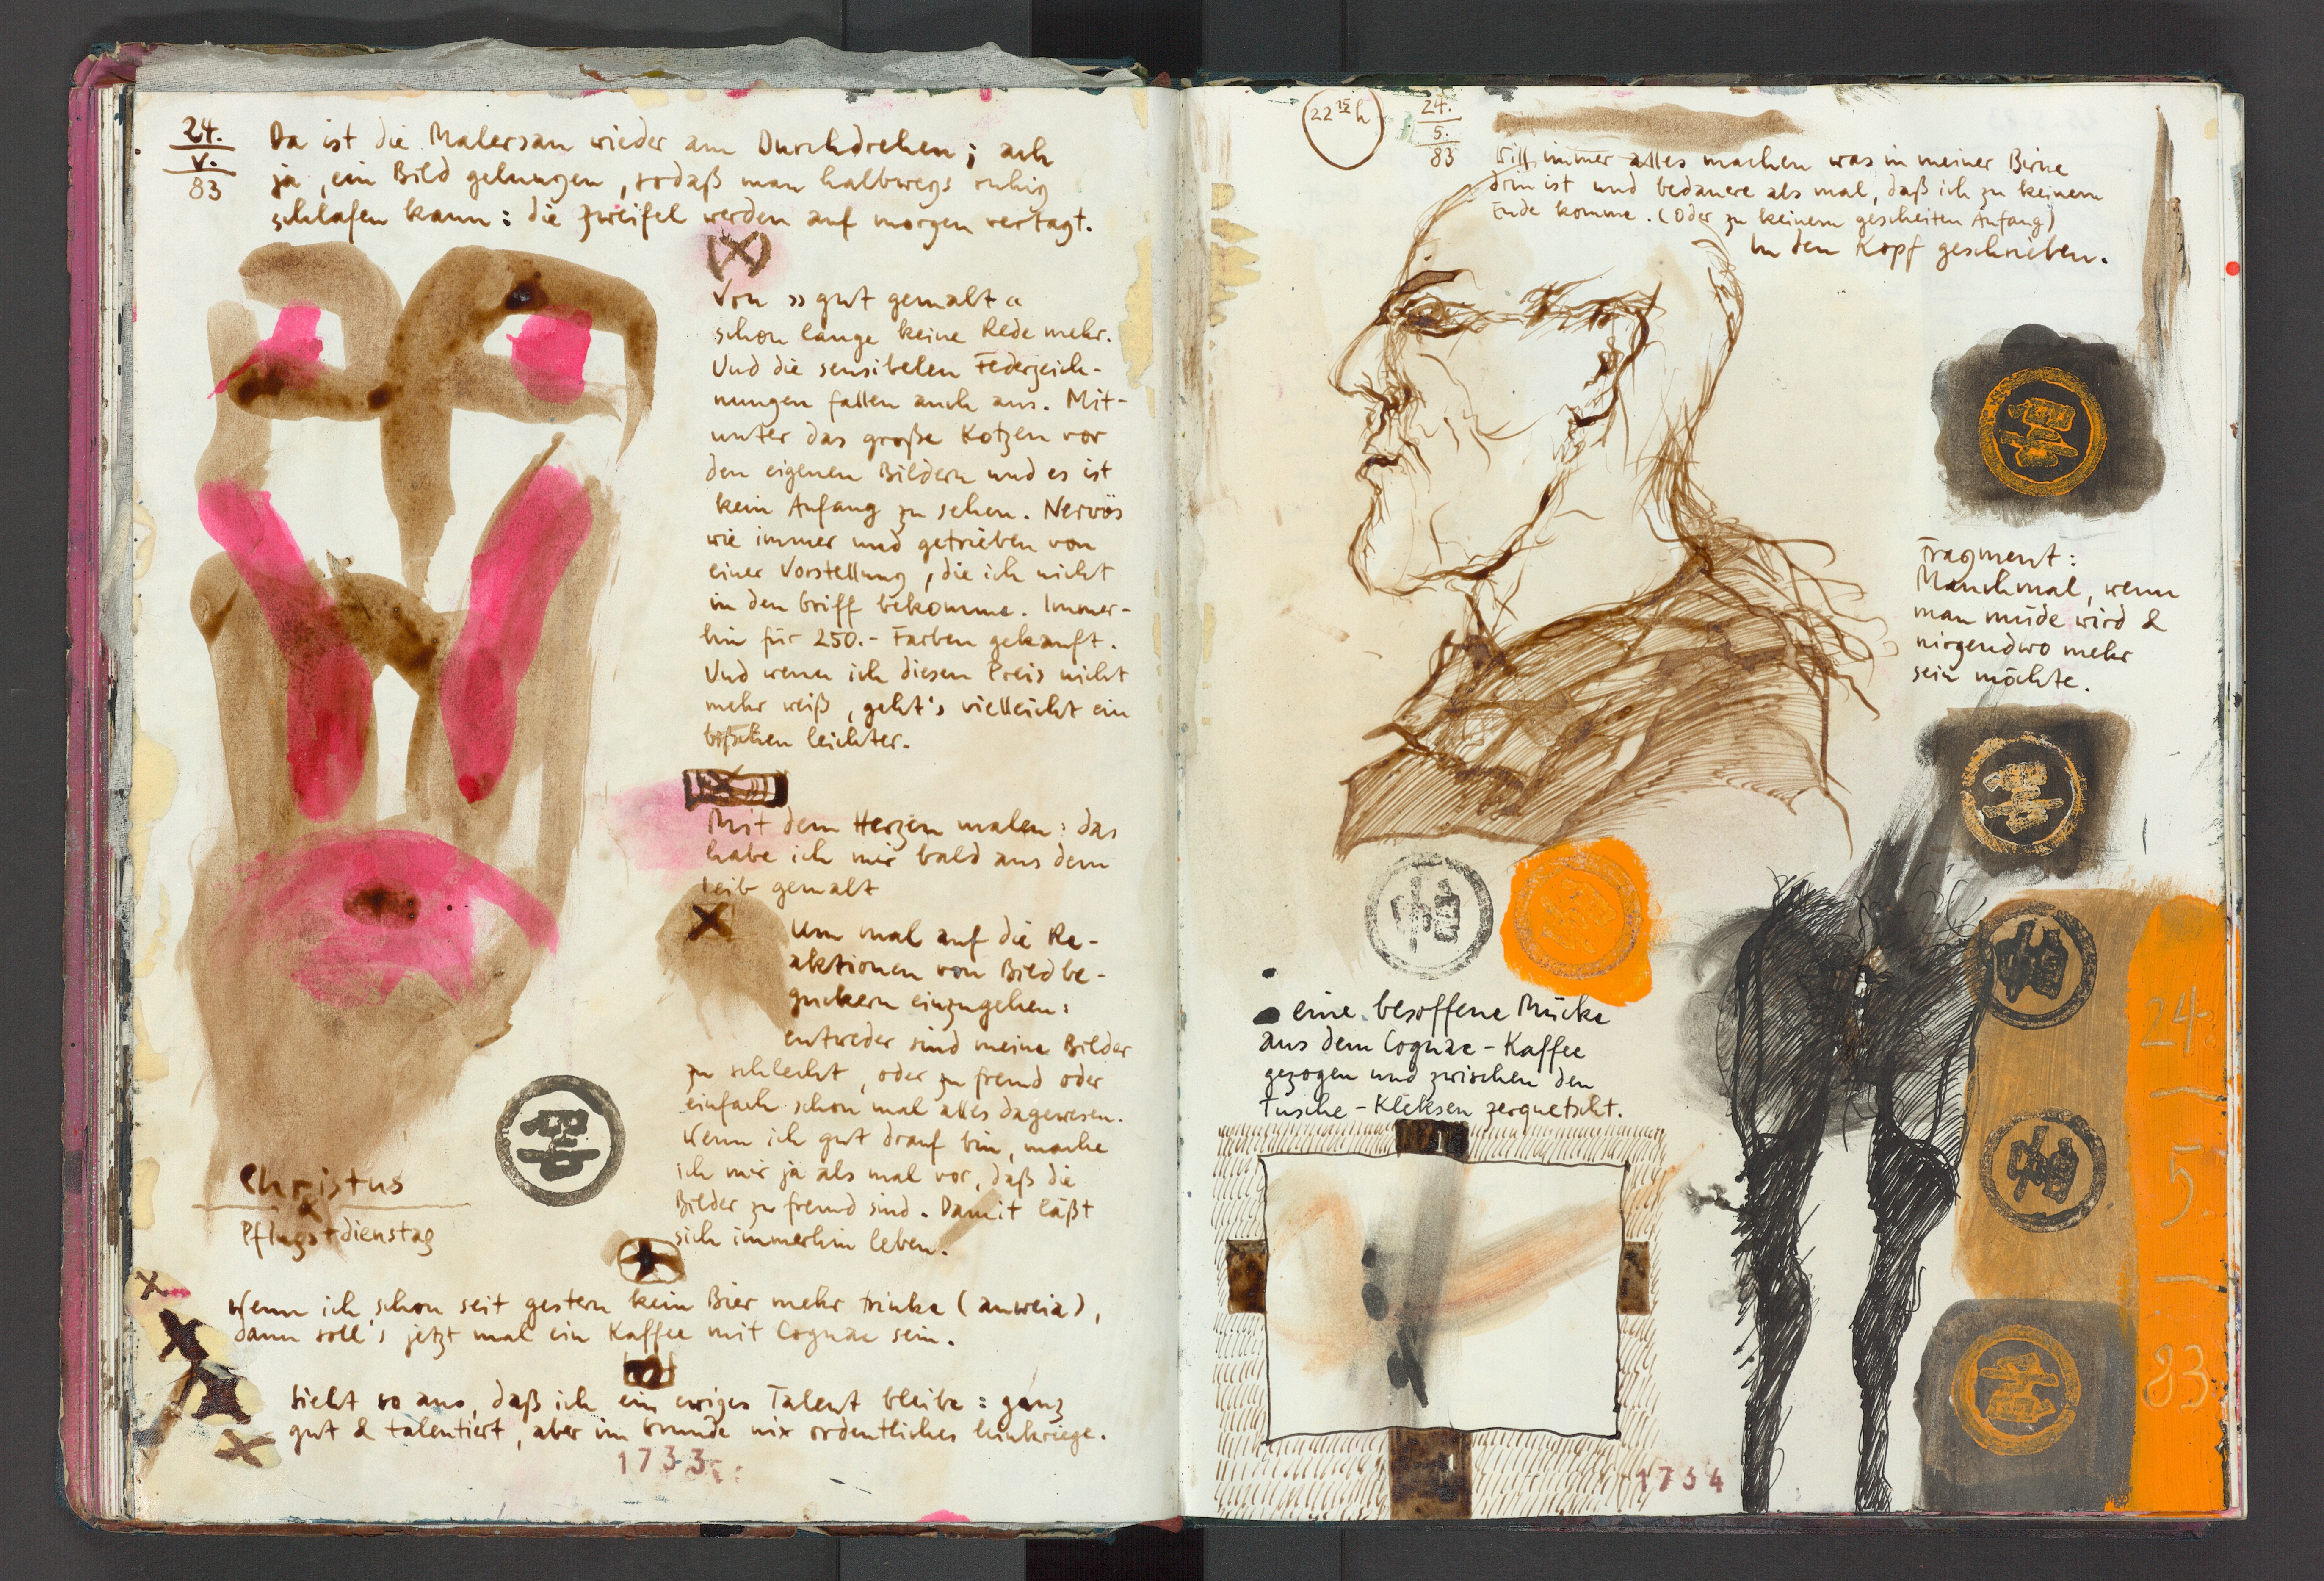 24.
V.
83
Da ist die Malersau wieder am Durchdrehen; ach
ja, ein Bild gelungen, sodaß man halbwegs ruhig
schlafen kann: die Zweifel werden auf morgen vertagt.
(X)
Von »gut gemalt«
schon lange keine Rede mehr.
Und die sensibelen Federzeich-
nungen fallen auch aus. Mit-
unter das große Kotzen vor
den eigenen Bildern und es ist
kein Anfang zu sehen. Nervös
wie immer und getrieben von
einer Vorstellung, die ich nicht
in den Griff bekomme. Immer-
hin für 250.- Farben gekauft.
Und wenn ich diesen Preis nicht
mehr weiß, geht's vielleicht ein
bißchen leichter.
Mit dem Herzen malen: das
habe ich mir bald aus dem
Leib gemalt
X
Um mal auf die Re-
aktionen von Bildbe-
guckern einzugehen:
entweder sind meine Bilder
zu schlecht, oder zu fremd oder
einfach schon mal alles dagewesen.
Wenn ich gut drauf bin, mache
ich mir ja als mal vor, daß die
Bilder zu fremd sind. Damit läßt
sich immerhin leben.
Christus
&
Pfingstdienstag
Wenn ich schon seit gestern kein Bier mehr trinke (auweia),
dann soll's jetzt mal ein Kaffee mit Cognac sein.
Sieht so aus, daß ich ein ewiges Talent bleibe: ganz
gut & talentiert, aber im Grunde nix ordentliches hinkriege.
1733
22 15 h
24.
5.
83
Will immer alles machen was in meiner Birne
drin ist und bedauere als mal, daß ich zu keinem
Ende komme. (Oder zu keinem gescheiten Anfang)
In den Kopf geschrieben.
Fragment:
Manchmal, wenn
man müde wird &
nirgendwo mehr
sein möchte.
eine besoffene Mücke
aus dem Cognac-Kaffee
gezogen und zwischen den
Tusche-Kleksen zerquetscht.
24.
5.
83
1734